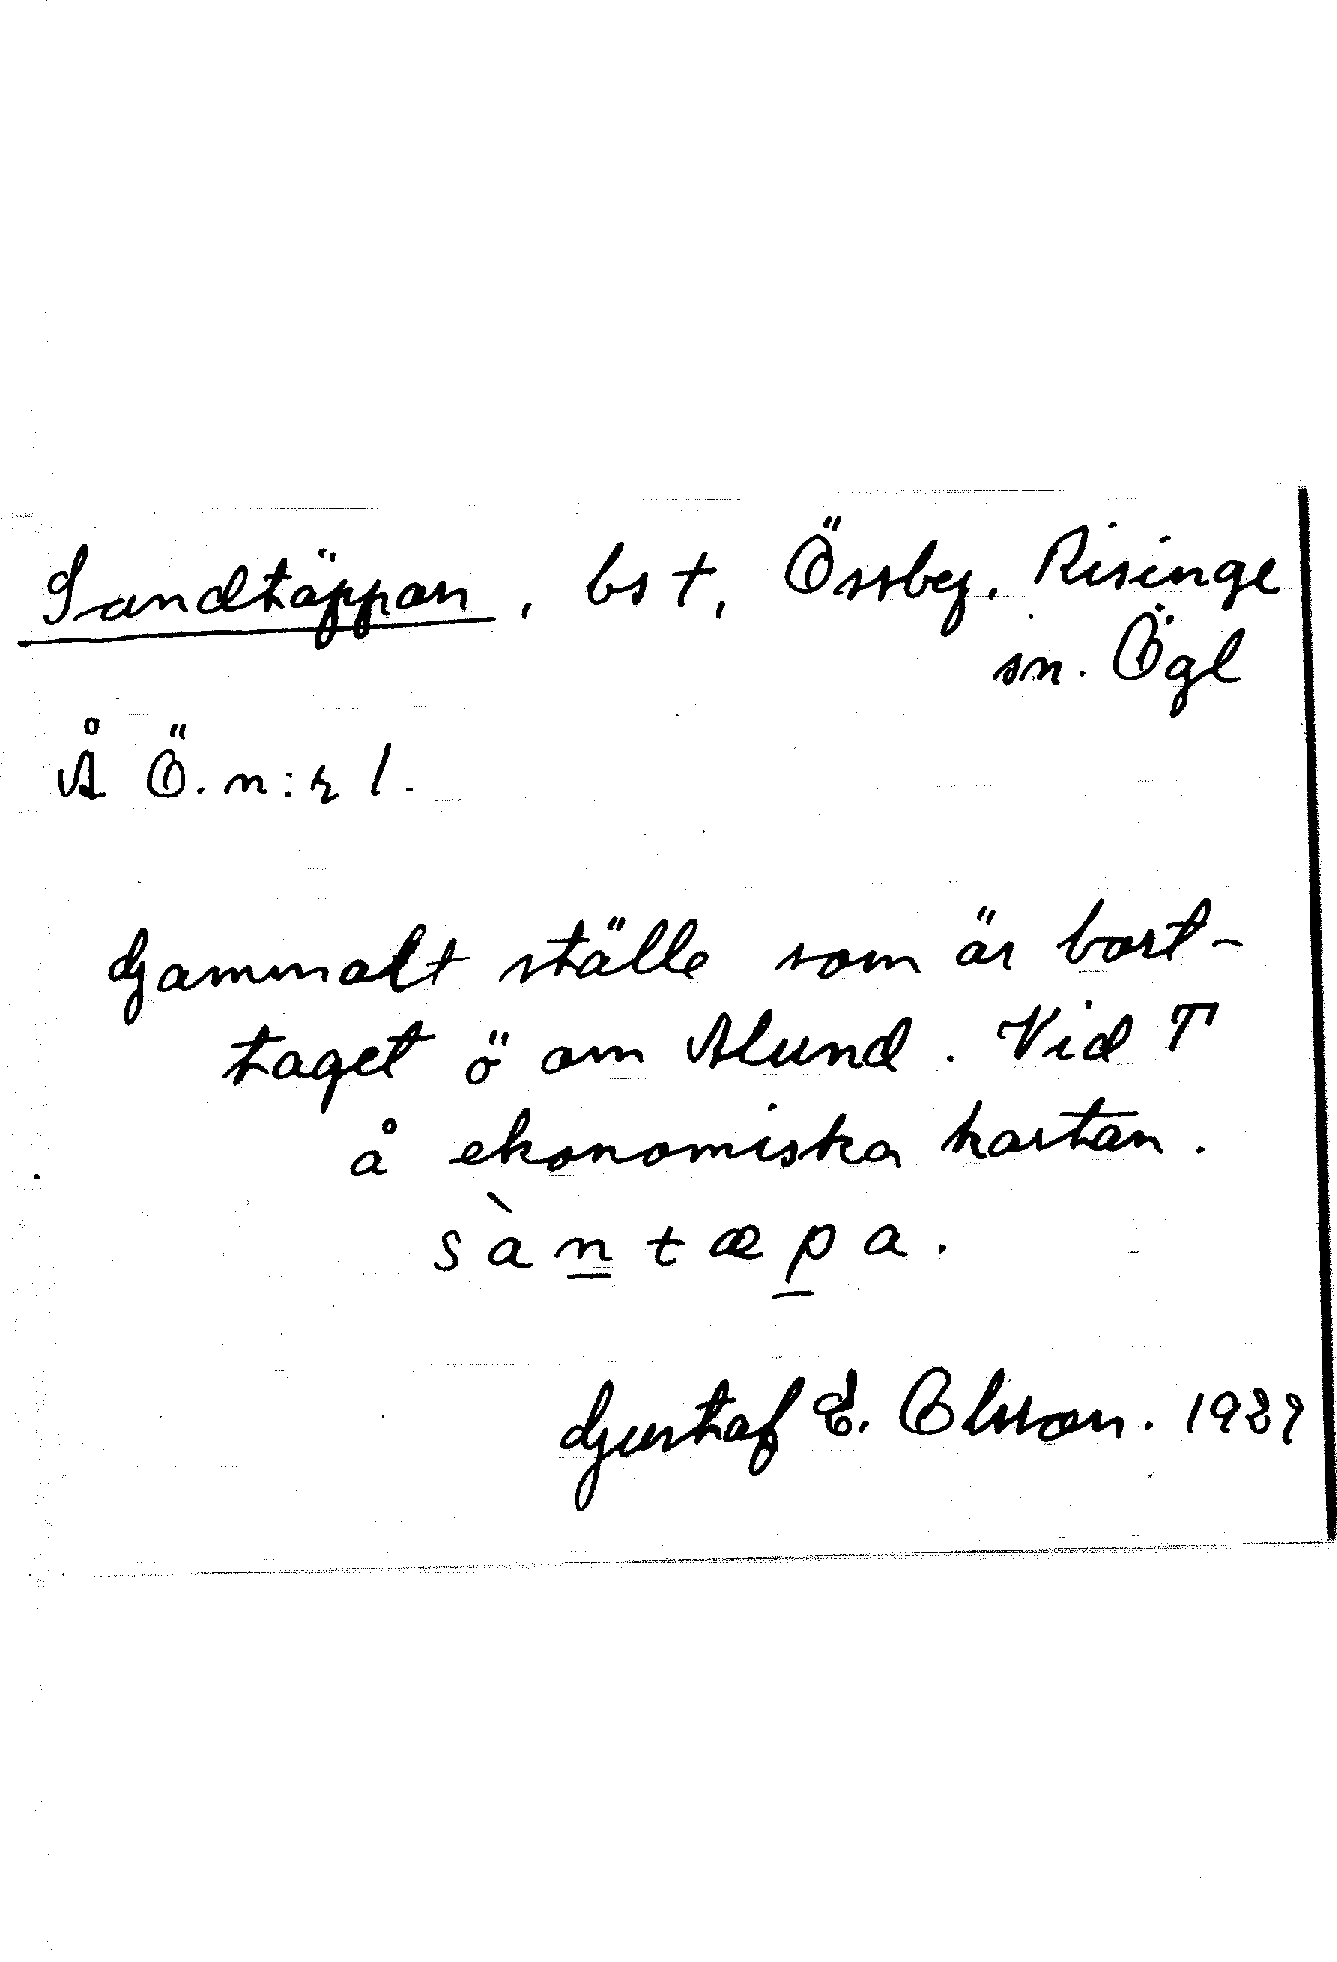 Sandtäppan, bst, Össby, Risinge
sn. Ögl
Å Ö. n:r 1.
Gammalt ställe som är bort-
taget ö om Alund. Vid T
å ekonomiska kartan.
sàntæpa.
Gustaf E. Olsson. 1939